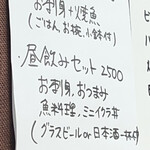 お刺身+焼魚
(ごはん、お椀、小鉢付)
昼飲みセット 2500
お刺身、おつまみ
魚料理、ミニイクラ丼
(グラスビール or 日本酒一杯付)